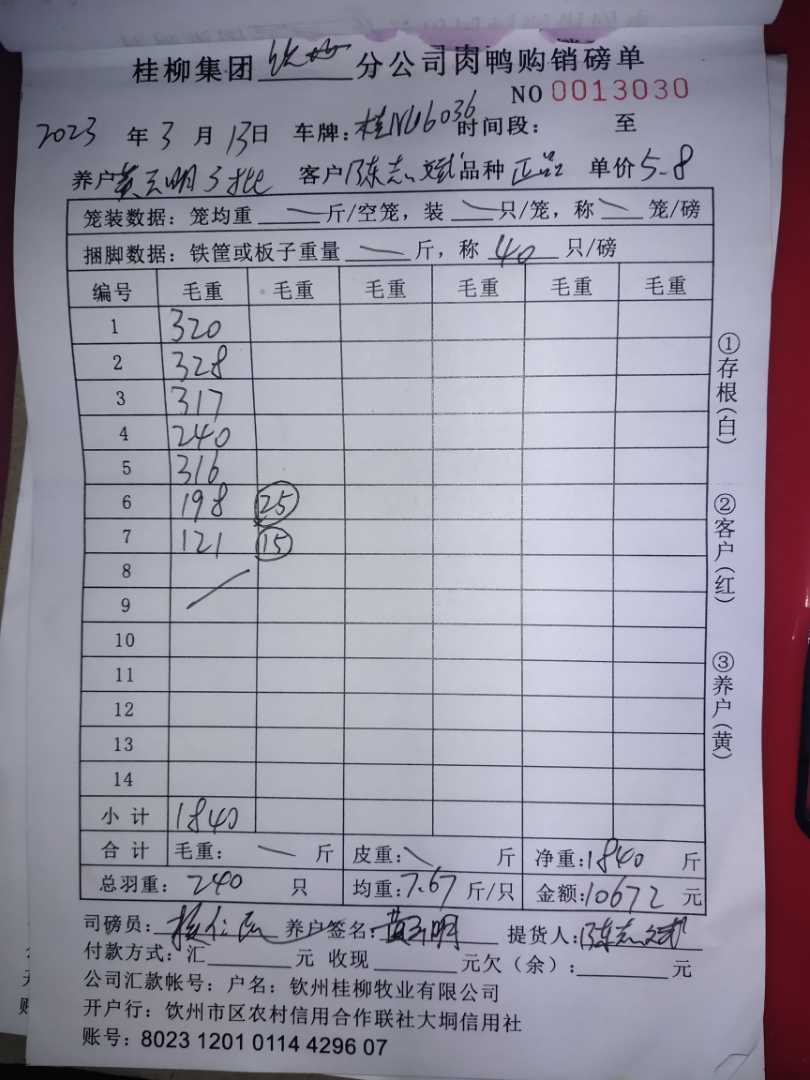 桂柳集团钦州分公司肉鸭购销磅单
NO 0013030
2023年3月13日 车牌：桂NU6036 时间段： 至
养户 明3批 客户 陈志斌 品种 正品 单价 5.8
笼装数据：笼均重 斤/空笼，装 只/笼，称 笼/磅
捆脚数据：铁筐或板子重量 斤，称 40 只/磅
编号 毛重 毛重 毛重 毛重 毛重 毛重
1 320
2 328
3 317
4 240
5 316
6 198 25
7 121 15
8
9
10
11
12
13
14
小计 1840
合计 毛重： 斤 皮重： 斤 净重：1840 斤
总羽重：240 只 均重：7.67 斤/只 金额：10672 元
司磅员： 养户签名： 明 提货人：陈志斌
付款方式：汇 元 收现 元欠（余）： 元
公司汇款帐号：户名：钦州桂柳牧业有限公司
开户行：钦州市区农村信用合作联社大垌信用社
账号：8023 1201 0114 4296 07
①存根（白）
②客户（红）
③养户（黄）